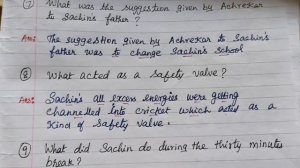 ⑦ What was the suggestion given by Achrekar
to Sachin's father ?
Ans: The suggestion given by Achrekar to Sachin's
father was to change Sachin's school
⑧ What acted as a safety valve ?
Ans: Sachin's all excess energies were getting
channelled into cricket which acted as a
kind of safety valve.
⑨ What did Sachin do during the thirty minutes
break ?